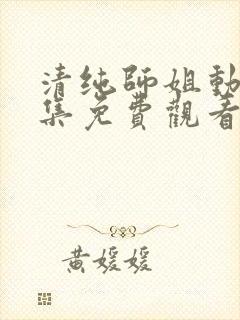 清纯師姐動
集免費觀看
黄媛媛